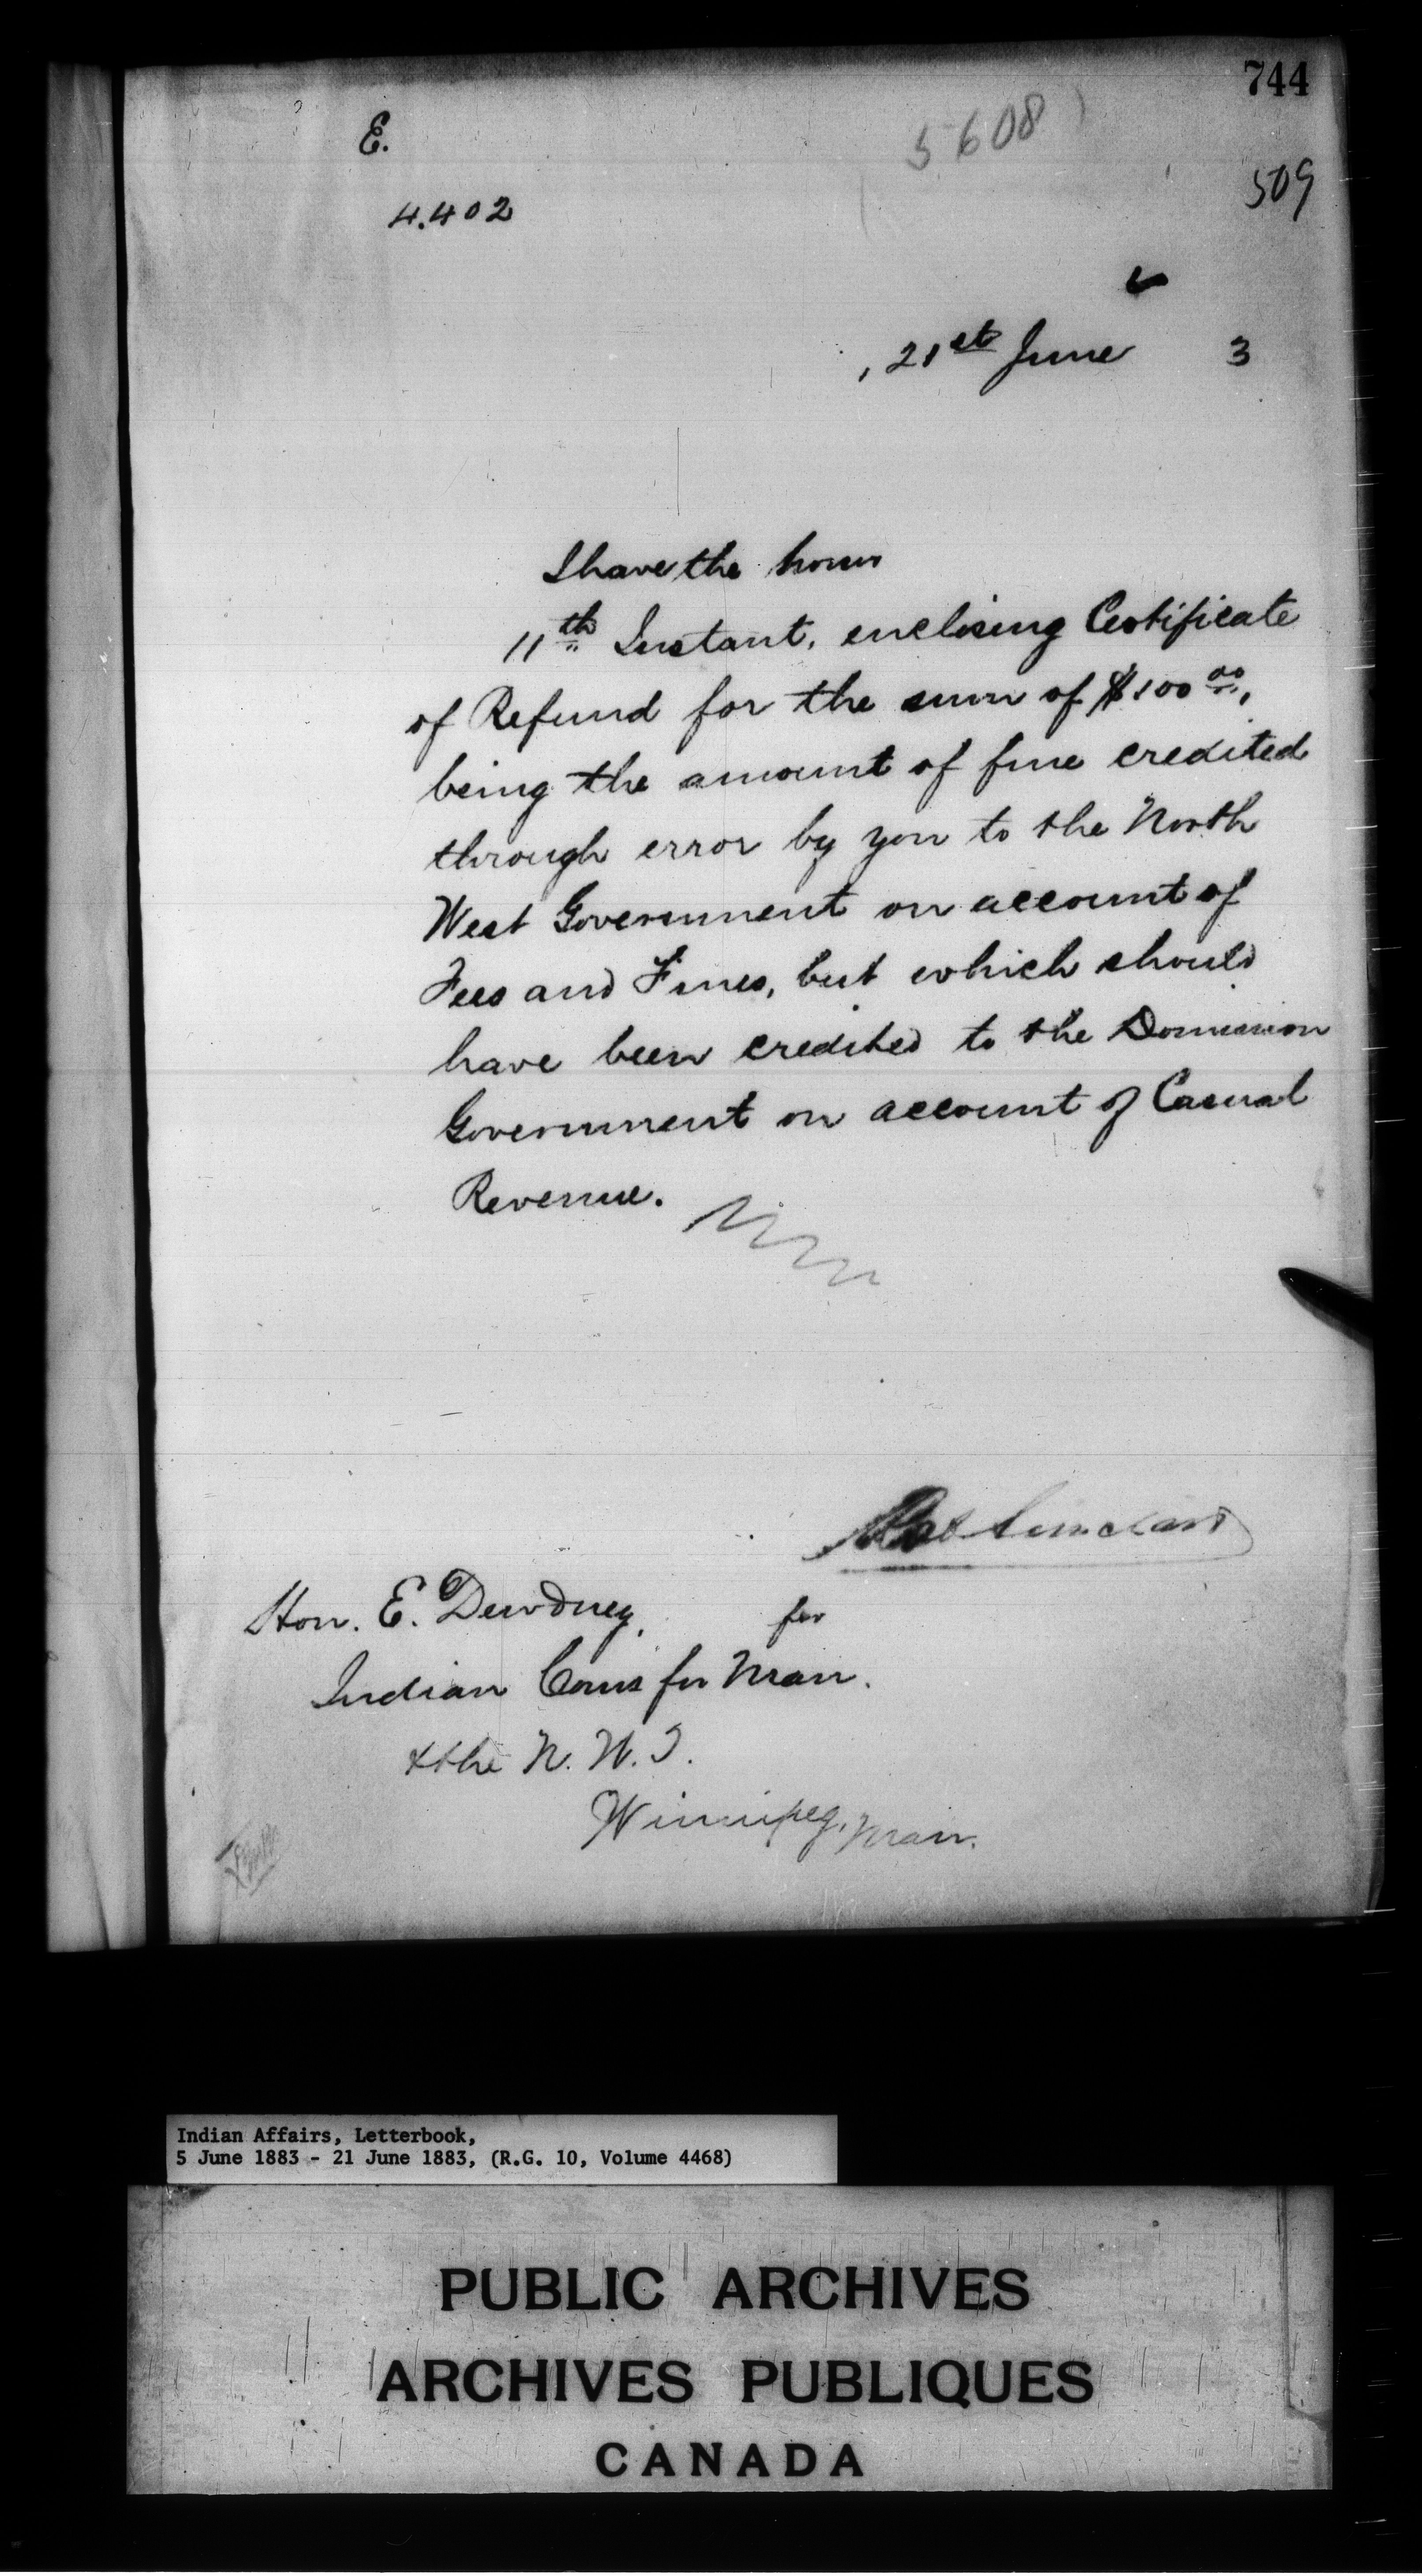 744
E.
5608
509
4.402
, 21st June 3
I have the honor
11th Instant, enclosing Certificate
of Refund for the sum of $100 00,
being the amount of fine credited
through error by you to the North
West Government on account of
Fees and Fines, but which should
have been credited to the Dominion
Government on account of Casual
Revenue.
Sinclair
Hon. E. Dewdney, for
Indian Coms for Man.
& the N. W. T.
Winnipeg, Man.
Indian Affairs, Letterbook,
5 June 1883 - 21 June 1883, (R.G. 10, Volume 4468)
PUBLIC ARCHIVES
ARCHIVES PUBLIQUES
CANADA